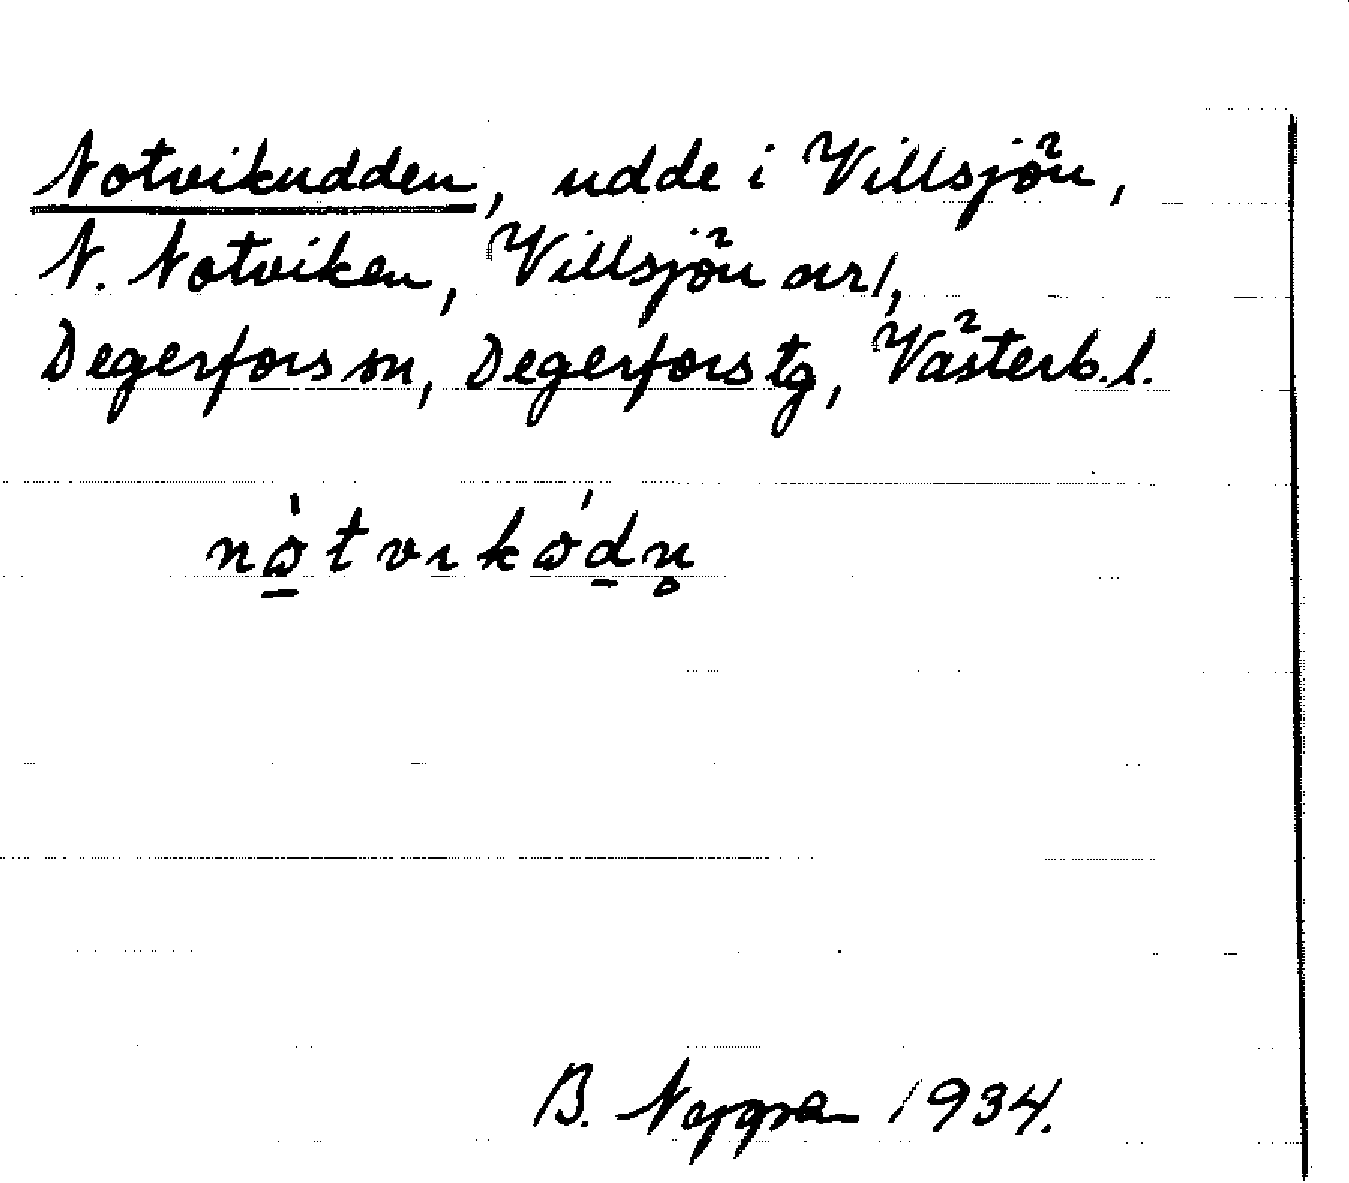 Notvikudden, udde i Villsjön,
N. Notviken, Villsjön nr 1,
Degerfors sn, Degerfors tg, Västerb. l.
B. Nygren 1934.